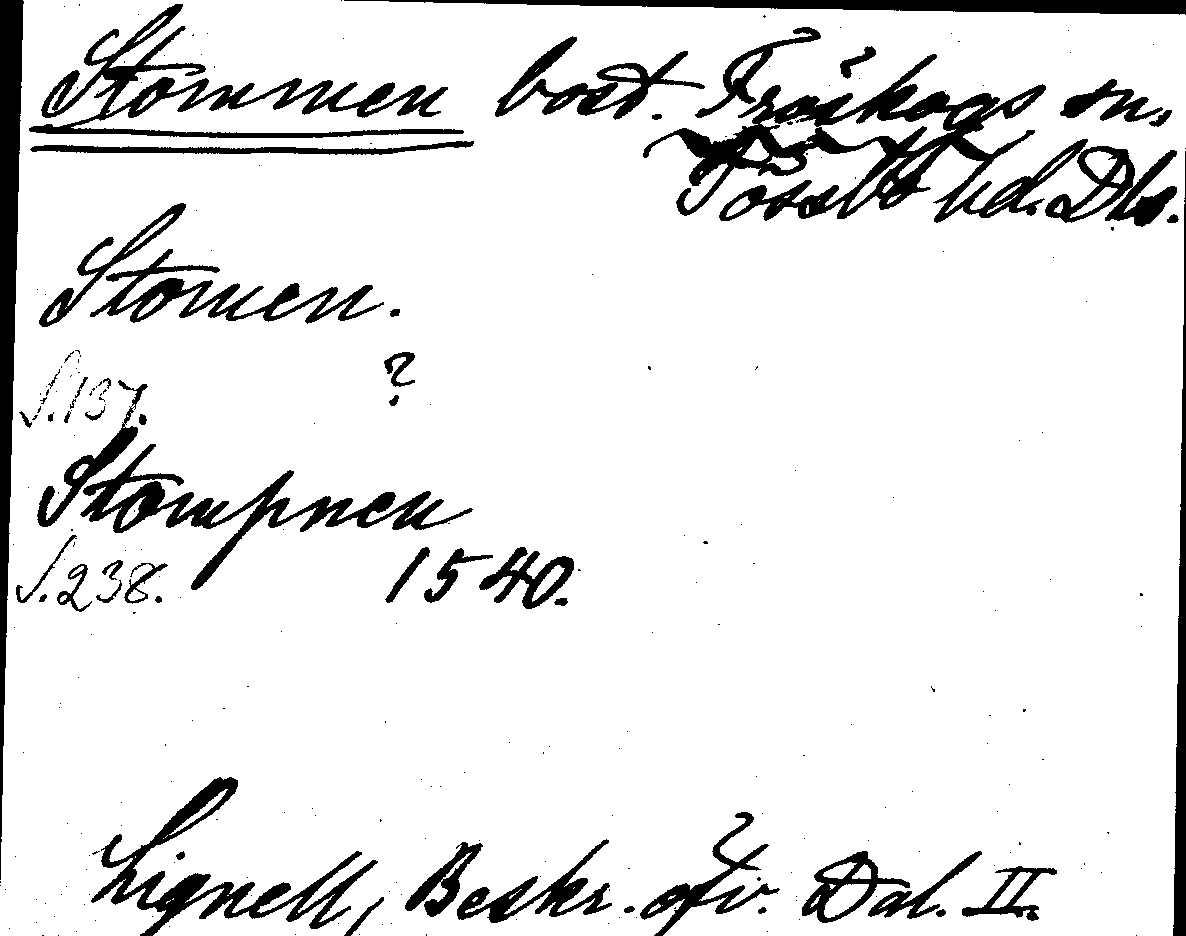 Stommen bost. Fröskogs sn.
Tössbo hd. Dls.
Stomen.
S. 137. ?
Stompnen
S. 238. 1540.
Lignell, Beskr. öfv. Dal. II.